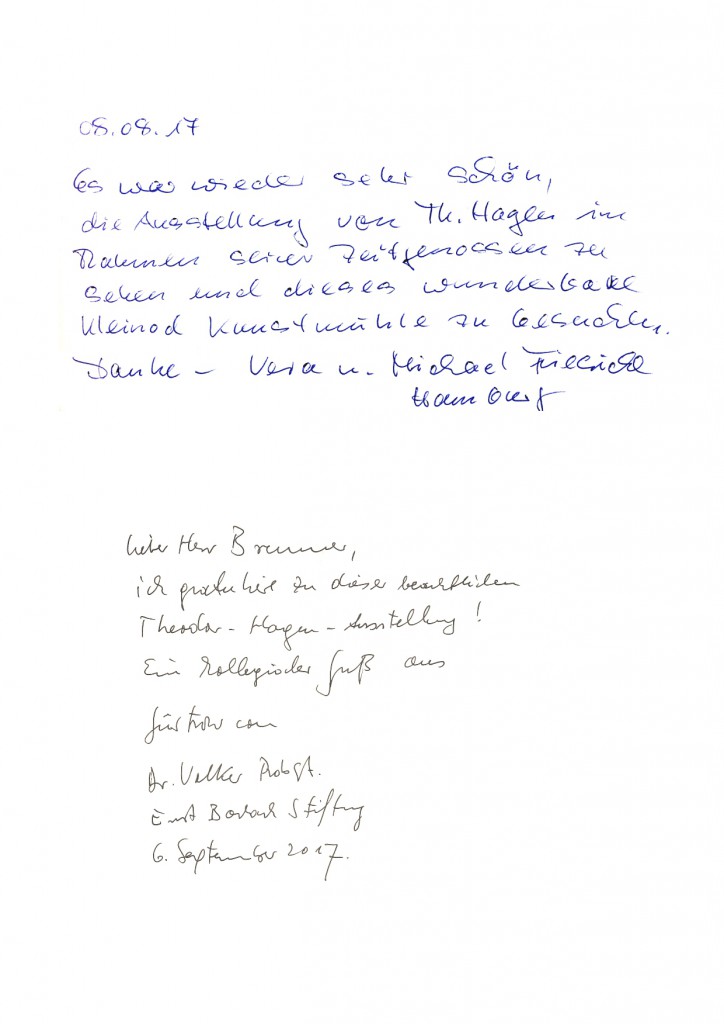 08.08.17
Es war wieder sehr schön,
die Ausstellung von Th. Hagen im
Rahmen seiner Zeitgenossen zu
sehen und dieses wunderbare
Kleinod Kunstmühle zu besuchen.
Danke – Vera u. Michael
Hamburg
Lieber Herr Brunner,
ich gratuliere zu dieser beachtlichen
Theodor-Hagen-Ausstellung!
Ein kollegialer Gruß aus
Güstrow von
Dr. Volker Probst.
Ernst Barlach Stiftung
6. September 2017.